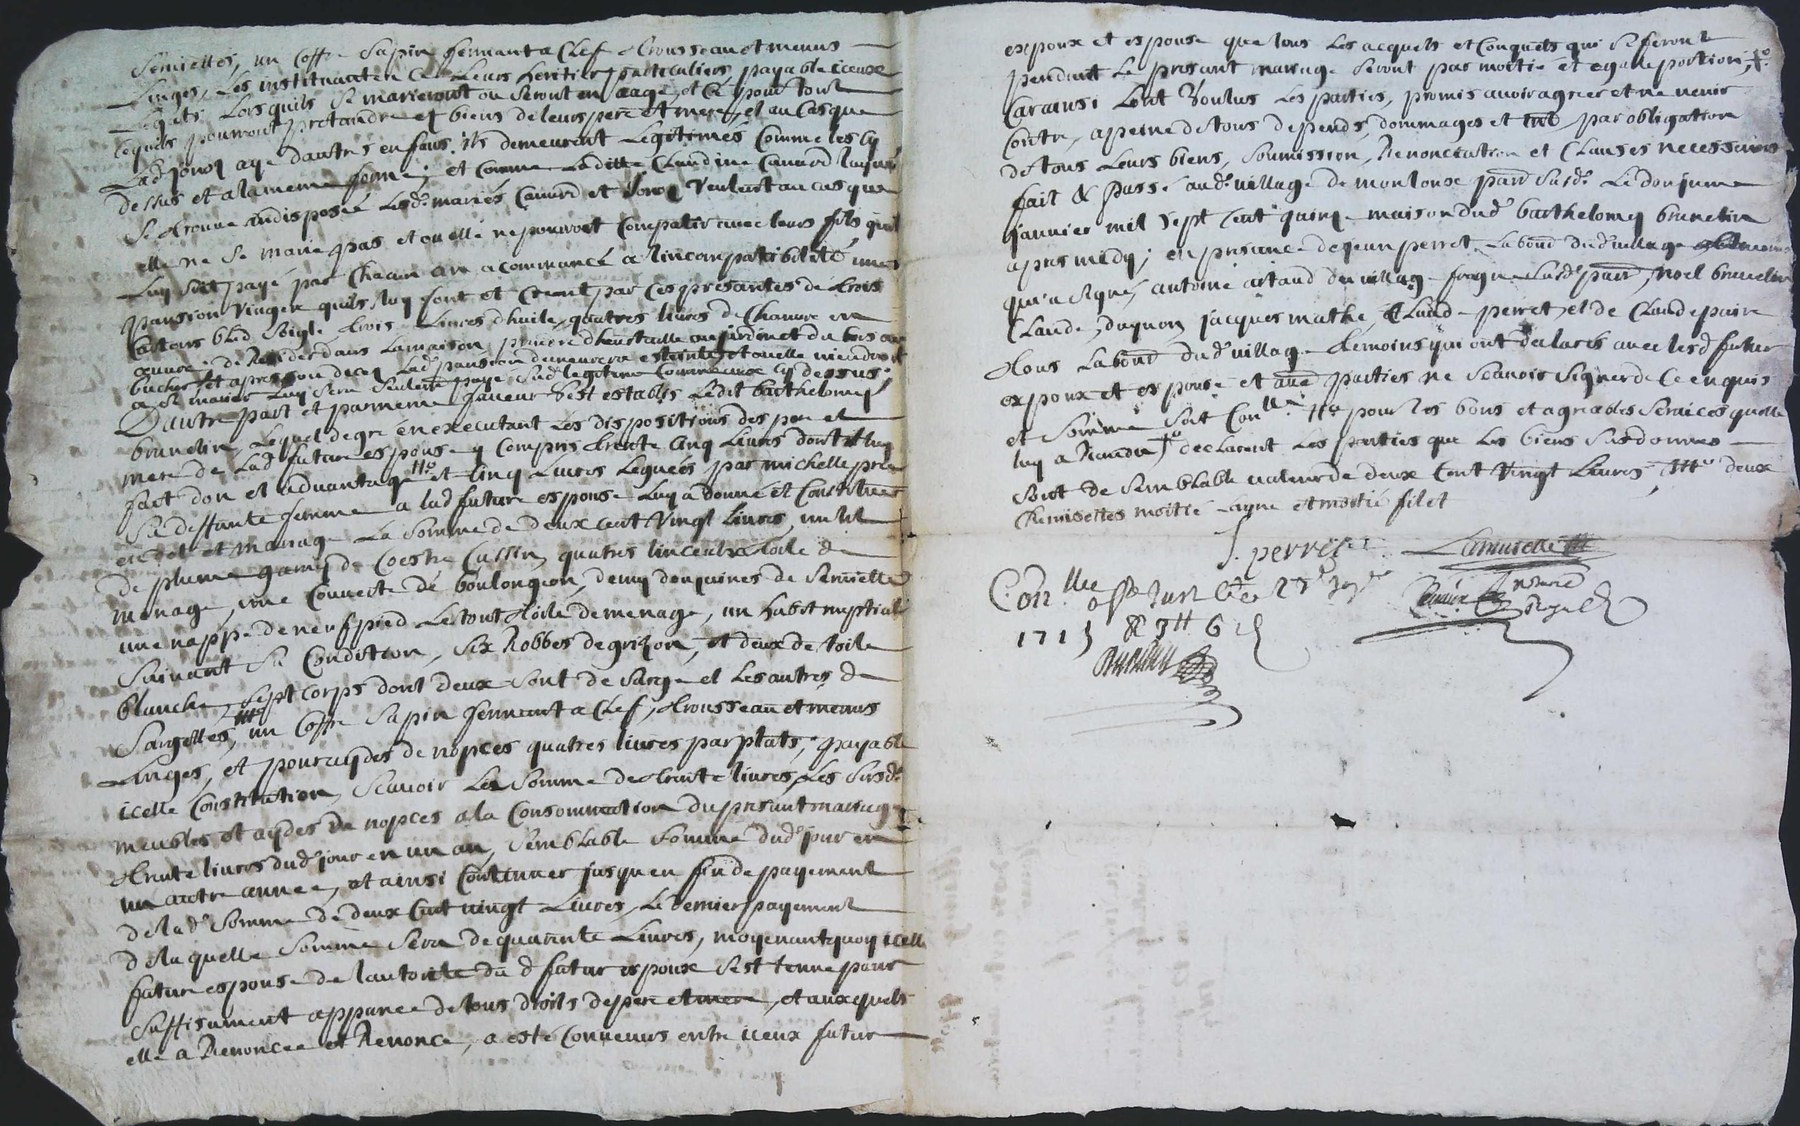 semielles, un coffre sapin fermant a clef trousseau et menus
linges, les instituants en ce leurs heritiers particuliers payable iceux
legats, lorsquils se marieront ou seront en aage, et ce pour tout
lequels pourront pretandre es biens de leurs pere et mere, et au cas que
lad. joncq aye dautres enfans ils demeurent legitimés comme les cy
dessus et a la meme forme, et comme ladite Claudine Canard
se trouve indisposée lesd. mariés Canard et joncq veulent au cas que
elle ne se marie pas et ou elle ne pourroit compatir avec leurs fils quil
luy soit payé par chacun an a commancé a lincompatibilité une
pansion viager quils luy font et creent par ces presantes de trois
blед soigle trois livres dhuile, quatres livres de chanvre en
œuvre, de resider dans la maison, prendre dheurtaille au jardin et du bois au
bucher et apres son deces lad. pansion demeurera esteinte et ou elle viendroit
a se marier luy sera seulement payé sud. legitime comme iceux cy dessus.
Dautre part et par meme faveur sest establis ledit barthelomy
brunelin, lequel de gre en executant les dispositions des pere et
mere de lad. future espouse y compris trente cinq livres dont il luy
fait don et advantage et cinq livres leguées par michelle
sa deffante femme a lad. future espouse luy a donné et constitué
en dot et mariage la somme de deux cent vingt livres, un lit
de plume garny de coestre cussin, quatres linceulx toile de
menage, une couverte de boulongeon, demy douzaines de semielles
une nappe de neuf pied le tout toile de menage, un habit nuptial
suivant sa condition, six robbes de grizon, et deux de toile
blanche, sept corps dont deux sont de sarge et les autres de
sargettes, un coffre sapin fermant a clef, trousseau et menus
linges, et pour aydes de nopces quatres livres par plats, payable
icelle constitution, scavoir la somme de trente livres, les susd.
meubles et aydes de nopces a la consommation du presant mariage
trente livres dud. jour en un an, semblable somme dud. jour en
un autre annee, et ainsi continuer jusqu en fin de payement
de lad. somme de deux cent vingt livres, le dernier payement
de laquelle somme sera de quarente livres, moyenant quoy icelle
future espouse de lautorité du d. futur espoux sest tenue pour
suffisament appanee de tous droits de pere et mere, et auxquels
elle a renoncée et renonce, a esté convenus entre iceux futur
expoux et espouse que tous les acquets et conquets qui se feront
pendant le presant mariage seront par moitié et egalle portion,
car ainsi lont voulus les parties, promis avoir agreer et ne venir
contre, a peine de tous depends, dommages et int. par obligation
de tous leurs biens, soumission, renonciation et clauses necessaires
fait & passé aud. village de montoux parr. susd. le donzieme
janvier mil sept cent quinze maison dud. barthelomy brunelin
apres midy, en presance de jean perret, labour. dud. village
qui a signé, antoine artaud du village fragne susd. parr., noel brunelin
Claude, dagnon, jacques mathe, Claude perret, et de Claude paire
tous labour. dud. village temoins qui ont declarés avec lesd. futur
expoux et espouse et aud. parties ne scavoir signer de ce enquis
et somme soit con.lle // pour les bons et agreables services quelle
luy a rendu // declarent les parties que les biens susdonnes
sont de semblable valeur de deux cent vingt livres, // deux
chemisettes moitié layne et moitié filet
J. perret
Con.lle
1715 & 3tt 6